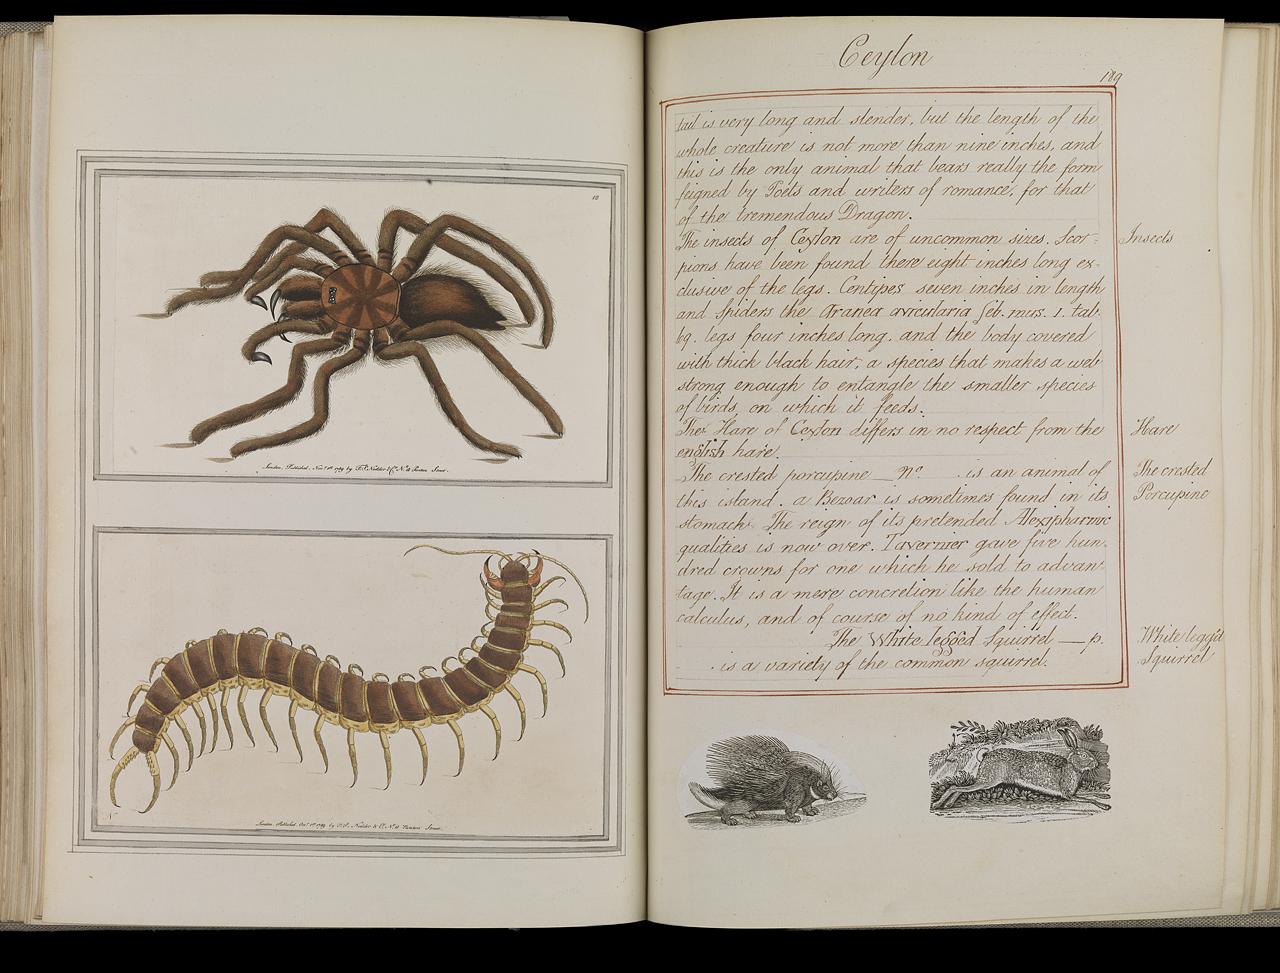 18
London, Published, Nov.r 1st 1789 by F.P. Nodder & Co. No. 15 Brewer Street.
London, Published, Oct.r 1st 1789 by F.P. Nodder & Co. No. 15 Brewer Street.
Ceylon
189
tail is very long and slender, but the length of the
whole creature is not more than nine inches, and
this is the only animal that bears really the form
feigned by Poets and writers of romance, for that
of the tremendous Dragon.
The insects of Ceylon are of uncommon sizes. Scor-
Insects
pions have been found there eight inches long ex-
clusive of the legs. Centipes seven inches in length
and Spiders the Aranea avicularia Seb. mus. 1. tab.
69. legs four inches long. and the body covered
with thick black hair, a species that makes a web
strong enough to entangle the smaller species
of birds, on which it feeds.
The Hare of Ceylon differs in no respect from the
Hare
english hare.
The crested porcupine — no. is an animal of
The crested
this island. a Bezoar is sometimes found in its
Porcupine
stomach. The reign of its pretended Alexipharmic
qualities is now over. Tavernier gave five hun-
dred crowns for one which he sold to advan-
tage. It is a mere concretion like the human
calculus, and of course of no kind of effect.
The White legged Squirrel — p.
White legg'd
is a variety of the common squirrel.
Squirrel